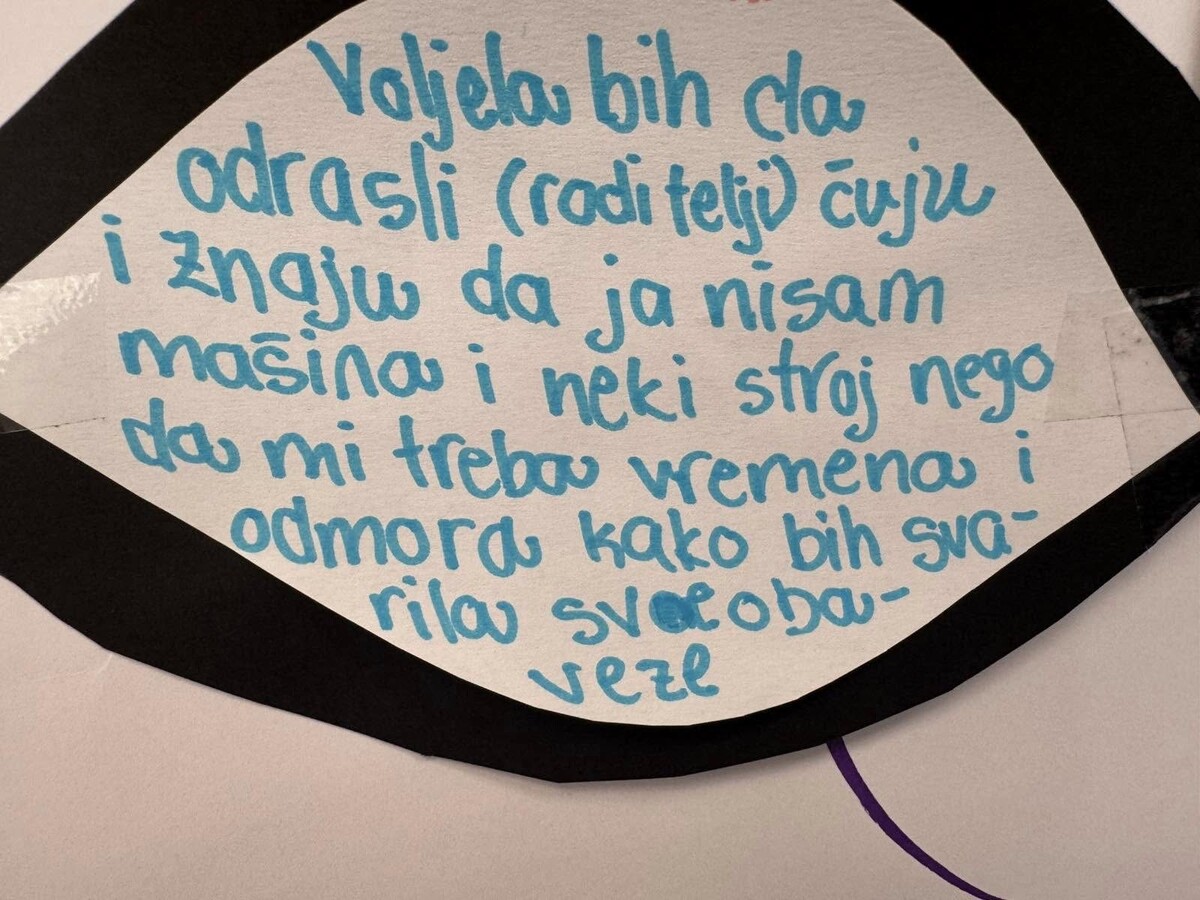 Voljela bih da
odrasli (roditelji) čuju
i znaju da ja nisam
mašina i neki stroj nego
da mi treba vremena i
odmora kako bih sva-
rila sve oba-
veze